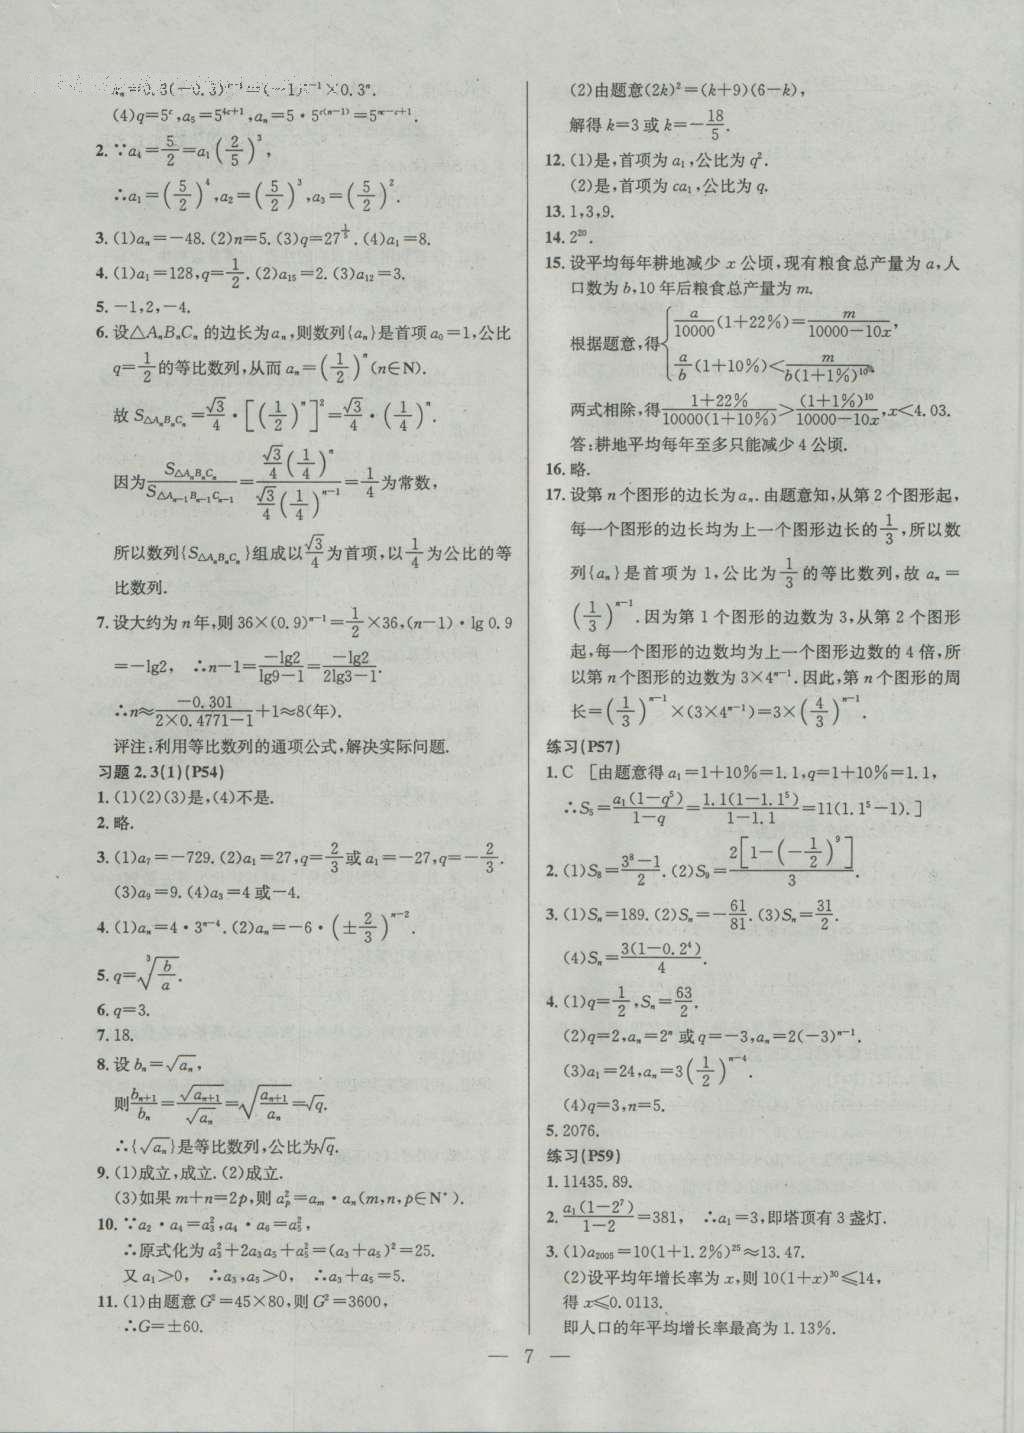 aₙ=0.3(-0.3)ⁿ⁻¹=(-1)ⁿ⁻¹×0.3ⁿ.
(4)q=5ᶜ,a₅=5⁴ᶜ⁺¹,aₙ=5·5ᶜ⁽ⁿ⁻¹⁾=5ⁿᶜ⁻ᶜ⁺¹.
2.∵a₄=5/2=a₁(2/5)³,
∴a₁=(5/2)⁴,a₂=(5/2)³,a₃=(5/2)².
3.(1)aₙ=-48.(2)n=5.(3)q=27^(1/5).(4)a₁=8.
4.(1)a₁=128,q=1/2.(2)a₁₅=2.(3)a₁₂=3.
5.-1,2,-4.
6.设△AₙBₙCₙ的边长为aₙ,则数列{aₙ}是首项a₀=1,公比
q=1/2的等比数列,从而aₙ=(1/2)ⁿ(n∈N).
故S△AₙBₙCₙ=√3/4·[(1/2)ⁿ]²=√3/4·(1/4)ⁿ.
因为S△AₙBₙCₙ/S△Aₙ₋₁Bₙ₋₁Cₙ₋₁=(√3/4(1/4)ⁿ)/(√3/4(1/4)ⁿ⁻¹)=1/4为常数,
所以数列{S△AₙBₙCₙ}组成以√3/4为首项,以1/4为公比的等
比数列.
7.设大约为n年,则36×(0.9)ⁿ⁻¹=1/2×36,(n-1)·lg 0.9
=-lg2, ∴n-1=-lg2/(lg9-1)=-lg2/(2lg3-1).
∴n≈-0.301/(2×0.4771-1)+1≈8(年).
评注:利用等比数列的通项公式,解决实际问题.
习题2.3(1)(P54)
1.(1)(2)(3)是,(4)不是.
2.略.
3.(1)a₇=-729.(2)a₁=27,q=2/3或a₁=-27,q=-2/3.
(3)a₉=9.(4)a₃=4或-4.
4.(1)aₙ=4·3ⁿ⁻⁴.(2)aₙ=-6·(±2/3)ⁿ⁻².
5.q=³√(b/a).
6.q=3.
7.18.
8.设bₙ=√aₙ,
则bₙ₊₁/bₙ=√aₙ₊₁/√aₙ=√(aₙ₊₁/aₙ)=√q.
∴{√aₙ}是等比数列,公比为√q.
9.(1)成立,成立.(2)成立.
(3)如果m+n=2p,则aₚ²=aₘ·aₙ(m,n,p∈N*).
10.∵a₂·a₄=a₃²,a₄·a₆=a₅²,
∴原式化为a₃²+2a₃a₅+a₅²=(a₃+a₅)²=25.
又a₁>0, ∴a₃,a₅>0, ∴a₃+a₅=5.
11.(1)由题意G²=45×80,则G²=3600,
∴G=±60.
(2)由题意(2k)²=(k+9)(6-k),
解得k=3或k=-18/5.
12.(1)是,首项为a₁,公比为q².
(2)是,首项为ca₁,公比为q.
13.1,3,9.
14.2²⁰.
15.设平均每年耕地减少x公顷,现有粮食总产量为a,人
口数为b,10年后粮食总产量为m.
根据题意,得{a/10000(1+22%)=m/(10000-10x),
a/b(1+10%)<m/(b(1+1%)¹⁰),
两式相除,得(1+22%)/(10000(1+10%))>(1+1%)¹⁰/(10000-10x),x<4.03.
答:耕地平均每年至多只能减少4公顷.
16.略.
17.设第n个图形的边长为aₙ.由题意知,从第2个图形起,
每一个图形的边长均为上一个图形边长的1/3,所以数
列{aₙ}是首项为1,公比为1/3的等比数列,故aₙ=
(1/3)ⁿ⁻¹.因为第1个图形的边数为3,从第2个图形
起,每一个图形的边数均为上一个图形边数的4倍,所
以第n个图形的边数为3×4ⁿ⁻¹.因此,第n个图形的周
长=(1/3)ⁿ⁻¹×(3×4ⁿ⁻¹)=3×(4/3)ⁿ⁻¹.
练习(P57)
1.C [由题意得a₁=1+10%=1.1,q=1+10%=1.1,
∴S₅=a₁(1-q⁵)/(1-q)=1.1(1-1.1⁵)/(1-1.1)=11(1.1⁵-1).]
2.(1)S₈=(3⁸-1)/2.(2)S₉=2[1-(-1/2)⁹]/3.
3.(1)Sₙ=189.(2)Sₙ=-61/81.(3)Sₙ=31/2.
(4)Sₙ=3(1-0.2⁴)/4.
4.(1)q=1/2,Sₙ=63/2.
(2)q=2,aₙ=2ⁿ或q=-3,aₙ=2(-3)ⁿ⁻¹.
(3)a₁=24,aₙ=3(1/2)ⁿ⁻⁴.
(4)q=3,n=5.
5.2076.
练习(P59)
1.11435.89.
2.a₁(1-2⁷)/(1-2)=381, ∴a₁=3,即塔顶有3盏灯.
3.(1)a₂₀₀₅=10(1+1.2%)²⁵≈13.47.
(2)设平均年增长率为x,则10(1+x)³⁰≤14,
得x≤0.0113.
即人口的年平均增长率最高为1.13%.
— 7 —